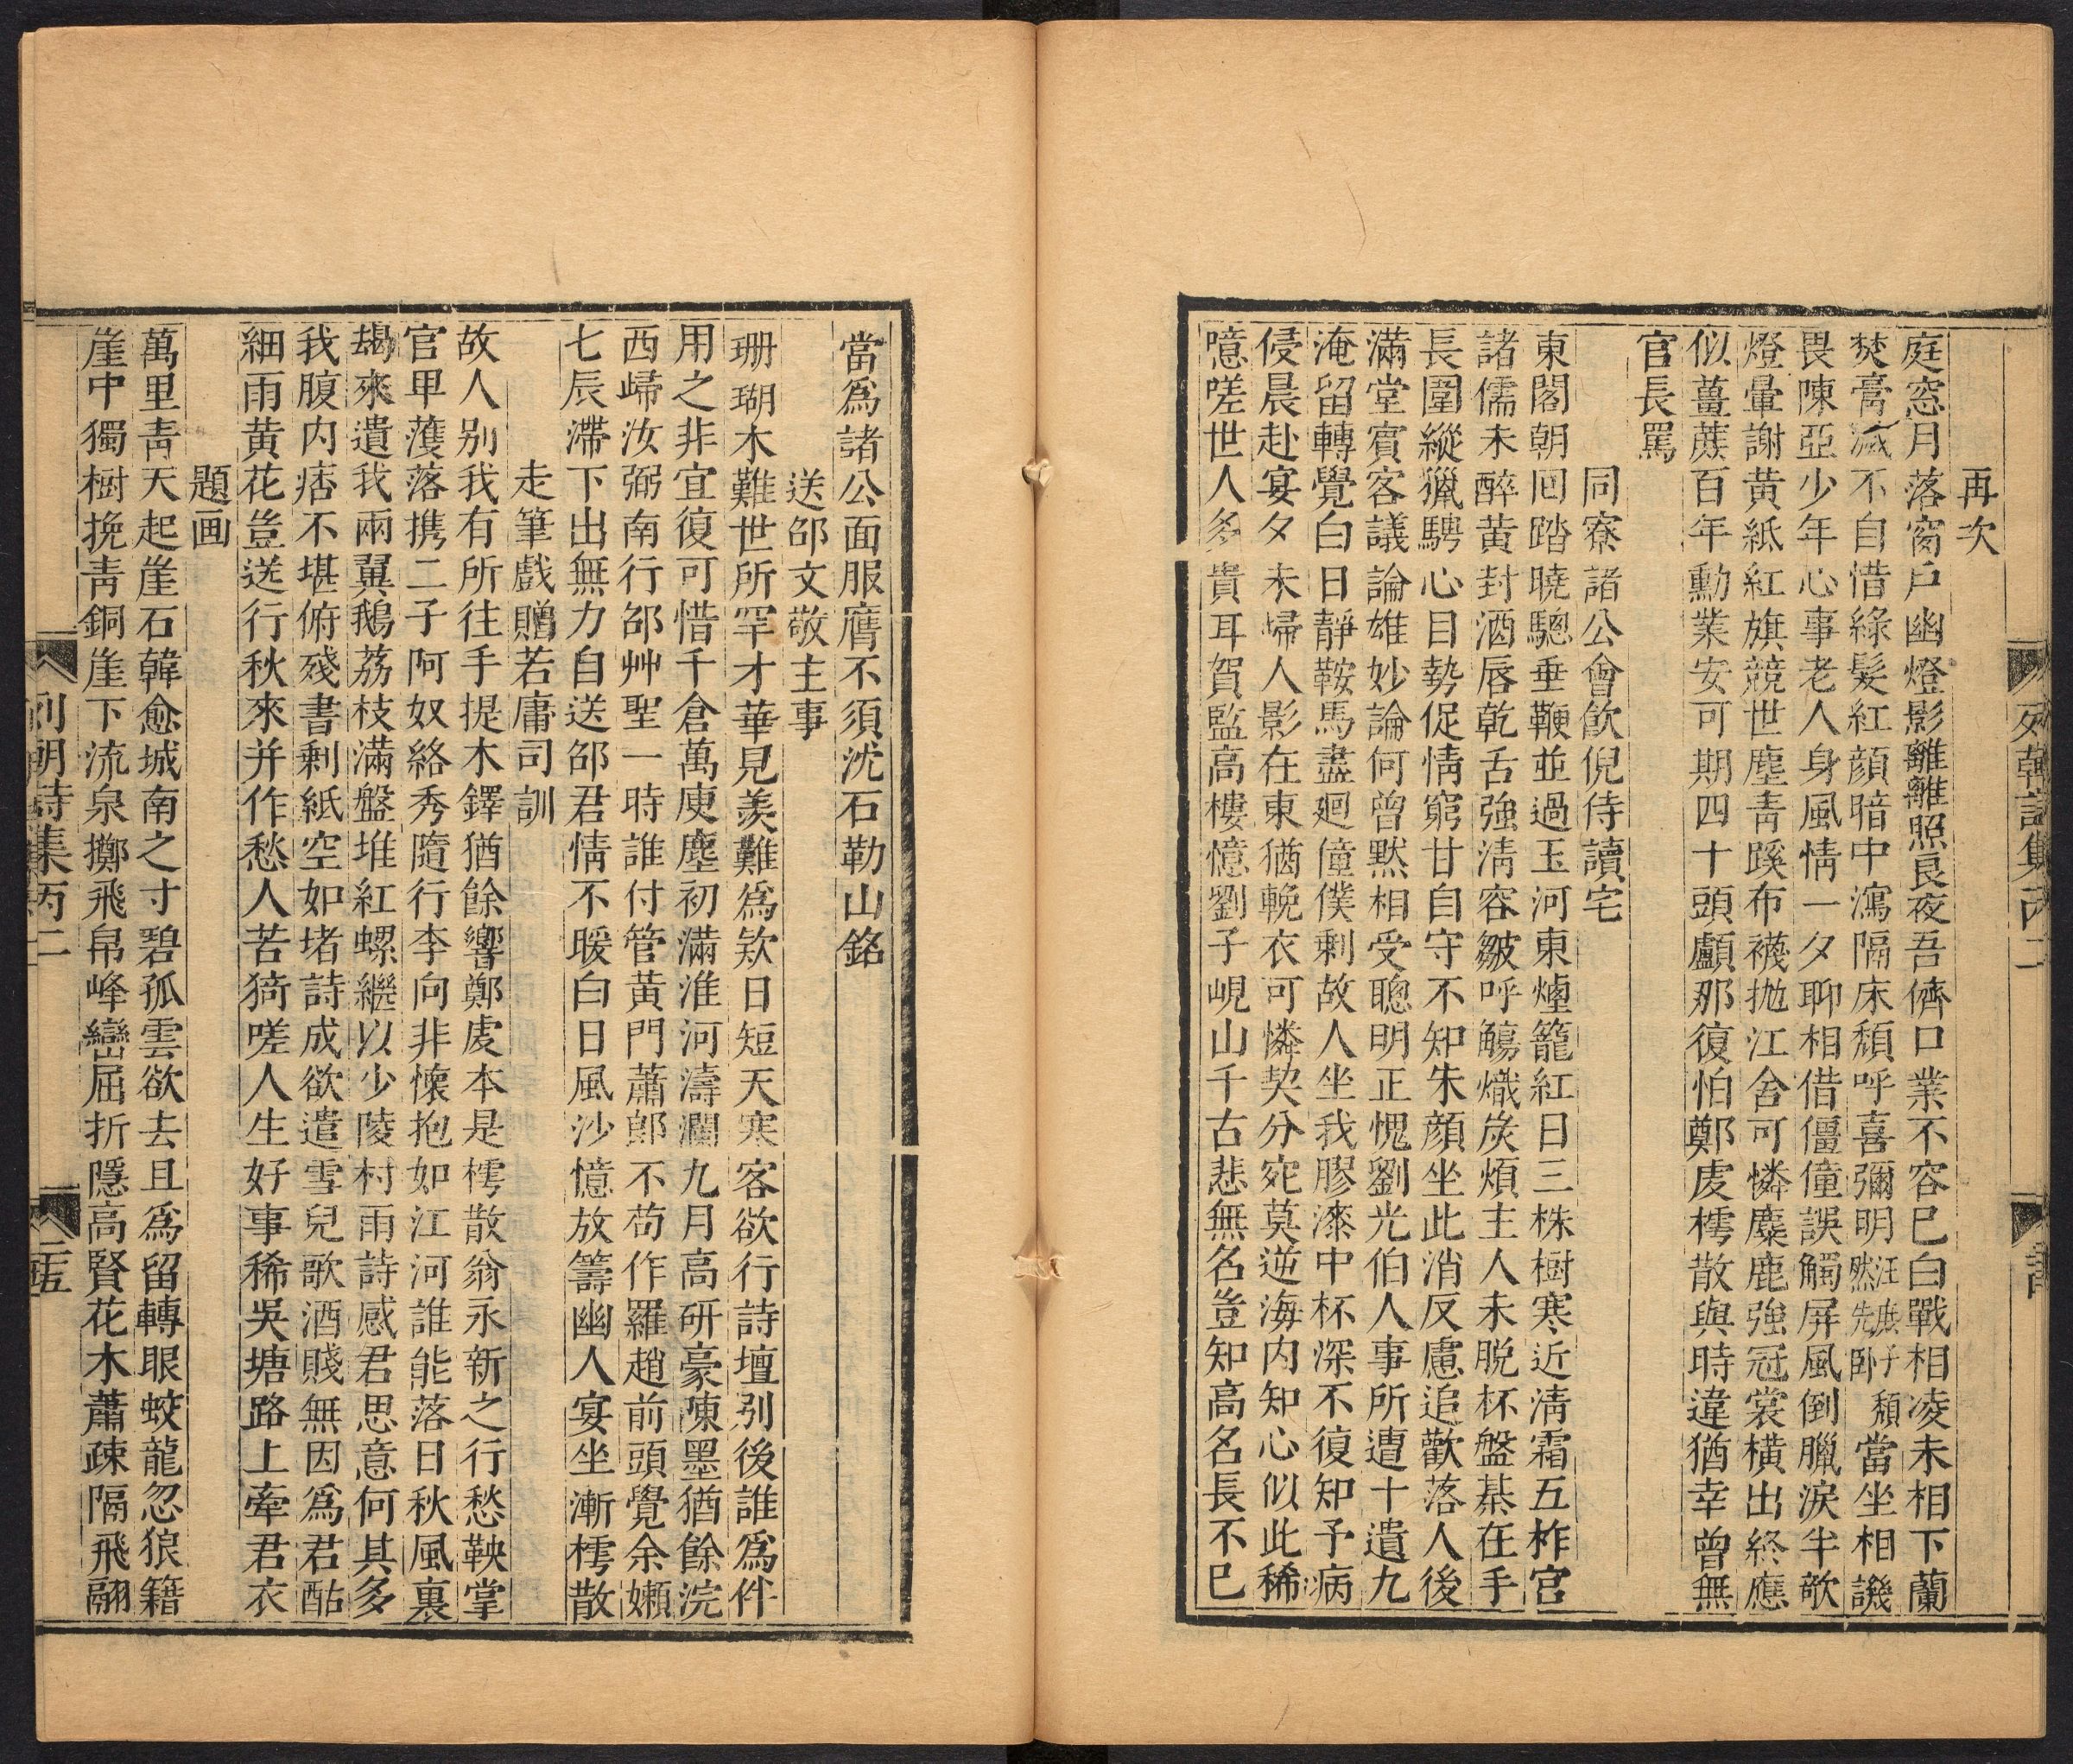 再次
庭窓月落窗戶幽燈影離離照良夜吾儕口業不容巳白戰相凌未相下蘭
焚膏滅不自惜綠髮紅顔暗中瀉隔床頹呼喜彌明汪庶子頹然先卧當坐相譏
畏陳亞少年心事老人身風情一夕聊相借僵僮誤觸屏風倒臘淚半欹
燈暈謝黃紙紅旗競世塵靑蹊布襪抛江舍可憐麋鹿強冠裳横出終應
似薑蔗百年勳業安可期四十頭顱那復怕鄭虔樗散與時違猶幸曾無
官長罵
同寮諸公會飮倪侍讀宅
東閣朝回踏曉驄垂鞭並過玉河東煙籠紅日三株樹寒近淸霜五柞宮
諸儒未醉黄封酒唇乾舌強淸容皺呼觴熾炭煩主人未脱杯盤棊在手
長圍縱獵騁心目勢促情窮甘自守不知朱顔坐此消反慮追歡落人後
滿堂賓客議論雄妙論何曾默相受聰明正愧劉光伯人事所遭十遺九
淹留轉覺白日靜鞍馬盡廻僮僕剰故人坐我膠漆中杯深不復知予病
侵晨赴宴夕未歸人影在東猶輓衣可憐契分宛莫逆海内知心似此稀
噫嗟世人多貴耳賀監高樓憶劉子峴山千古悲無名豈知高名長不巳
當爲諸公面服膺不須沈石勒山銘
送邵文敬主事
珊瑚木難世所罕才華見羡難爲欵日短天寒客欲行詩壇别後誰爲伴
用之非宜復可惜千倉萬庾塵初滿淮河濤瀾九月高研豪凍墨猶餘浣
西歸汝弼南行邵艸聖一時誰付管黃門蕭郎不苟作羅趙前頭覺余嬾
七辰滯下出無力自送邵君情不暖白日風沙憶放籌幽人宴坐漸樗散
走筆戲贈若庸司訓
故人别我有所往手提木鐸猶餘響鄭虔本是樗散翁永新之行愁鞅掌
官卑濩落携二子阿奴絡秀隨行李向非懷抱如江河誰能落日秋風裏
朅來遺我兩翼鵝荔枝滿盤堆紅螺繼以少陵村雨詩感君思意何其多
我腹内痞不堪俯殘書剩紙空如堵詩成欲遣雪兒歌酒賤無因爲君酤
細雨黄花豈送行秋來并作愁人苦猗嗟人生好事稀吳塘路上牽君衣
題画
萬里靑天起崖石韓愈城南之寸碧孤雲欲去且爲留轉眼蛟龍忽狼籍
崖中獨樹挽靑銅崖下流泉擲飛帛峰巒屈折隱高賢花木蕭疎隔飛翮
列朝詩集丙二
二五